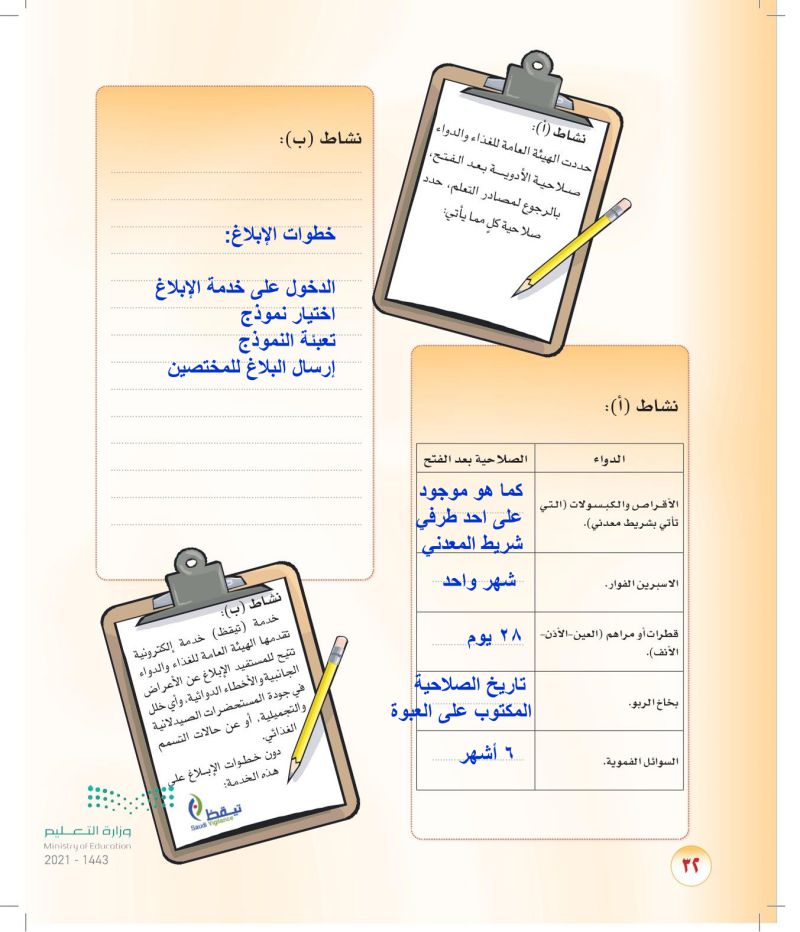 نشاط (أ):
حددت الهيئة العامة للغذاء والدواء
صـلاحية الأدويـــة بـعـد الـفـتـح،
بالرجوع لمصادر التعلم، حدد
صلاحية كلٍ مما يأتي:
نشاط (أ):
الدواء
الصلاحية بعد الفتح
الأقـراص والكبـسـولات (الـتـي
تأتي بشريط معدني).
كما هو موجود
على احد طرفي
شريط المعدني
الاسبرين الفوار.
شهر واحد
قطرات أو مراهم (العين-الأذن-
الأنف).
٢٨ يوم
بخاخ الربو.
تاريخ الصلاحية
المكتوب على العبوة
السوائل الفموية.
٦ أشهر
نشاط (ب):
خطوات الإبلاغ:
الدخول على خدمة الإبلاغ
اختيار نموذج
تعبئة النموذج
إرسال البلاغ للمختصين
نشاط (ب):
خدمة (تيقظ) خدمة إلكترونية
تقدمها الهيئة العامة للغذاء والدواء
تتيح للمستفيد الإبلاغ عن الأعراض
الجانبية والأخطاء الدوائية، وأي خلل
في جودة المستحضرات الصيدلانية
والتجميلية، أو عن حالات التسمم
الغذائي.
دون خطوات الإبـلاغ على
هذه الخدمة:
تيـقـظ
Saudi Vigilance
وزارة التعـــليم
Ministry of Education
2021 - 1443
٣٢